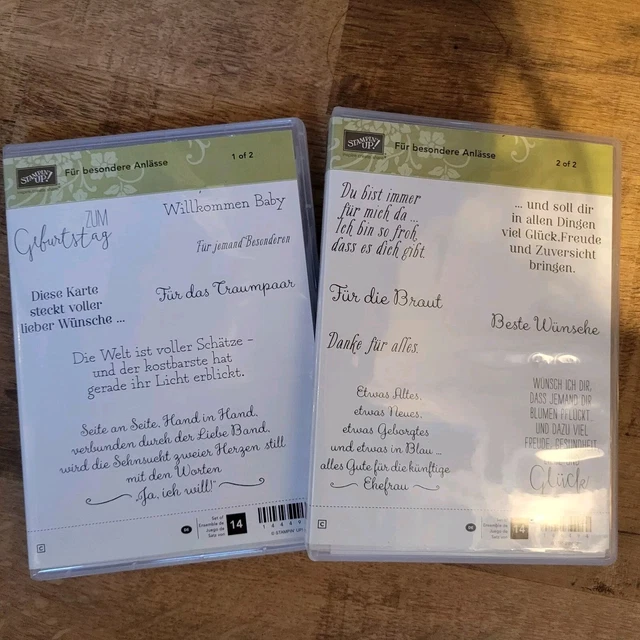 STAMPIN' UP!
Für besondere Anlässe
1 of 2
ZUM
Geburtstag
Willkommen Baby
Für jemand Besonderen
Diese Karte
steckt voller
lieber Wünsche ...
Für das Traumpaar
Die Welt ist voller Schätze –
und der kostbarste hat
gerade ihr Licht erblickt.
Seite an Seite, Hand in Hand,
verbunden durch der Liebe Band,
wird die Sehnsucht zweier Herzen still
mit den Worten
„Ja, ich will!“
C
DE
Set of
Ensemble de
Juego de
Satz von
14
© STAMPIN' UP!
STAMPIN' UP!
Für besondere Anlässe
2 of 2
Du bist immer
für mich da ...
Ich bin so froh,
dass es dich gibt.
... und soll dir
in allen Dingen
viel Glück, Freude
und Zuversicht
bringen.
Für die Braut
Beste Wünsche
Danke für alles.
Etwas Altes,
etwas Neues,
etwas Geborgtes
und etwas in Blau ...
alles Gute für die künftige
Ehefrau
WÜNSCH ICH DIR,
DASS JEMAND DIR
BLUMEN PFLÜCKT...
UND DAZU VIEL
FREUDE, GESUNDHEIT
Glück
C
DE
Set of
Ensemble de
Juego de
Satz von